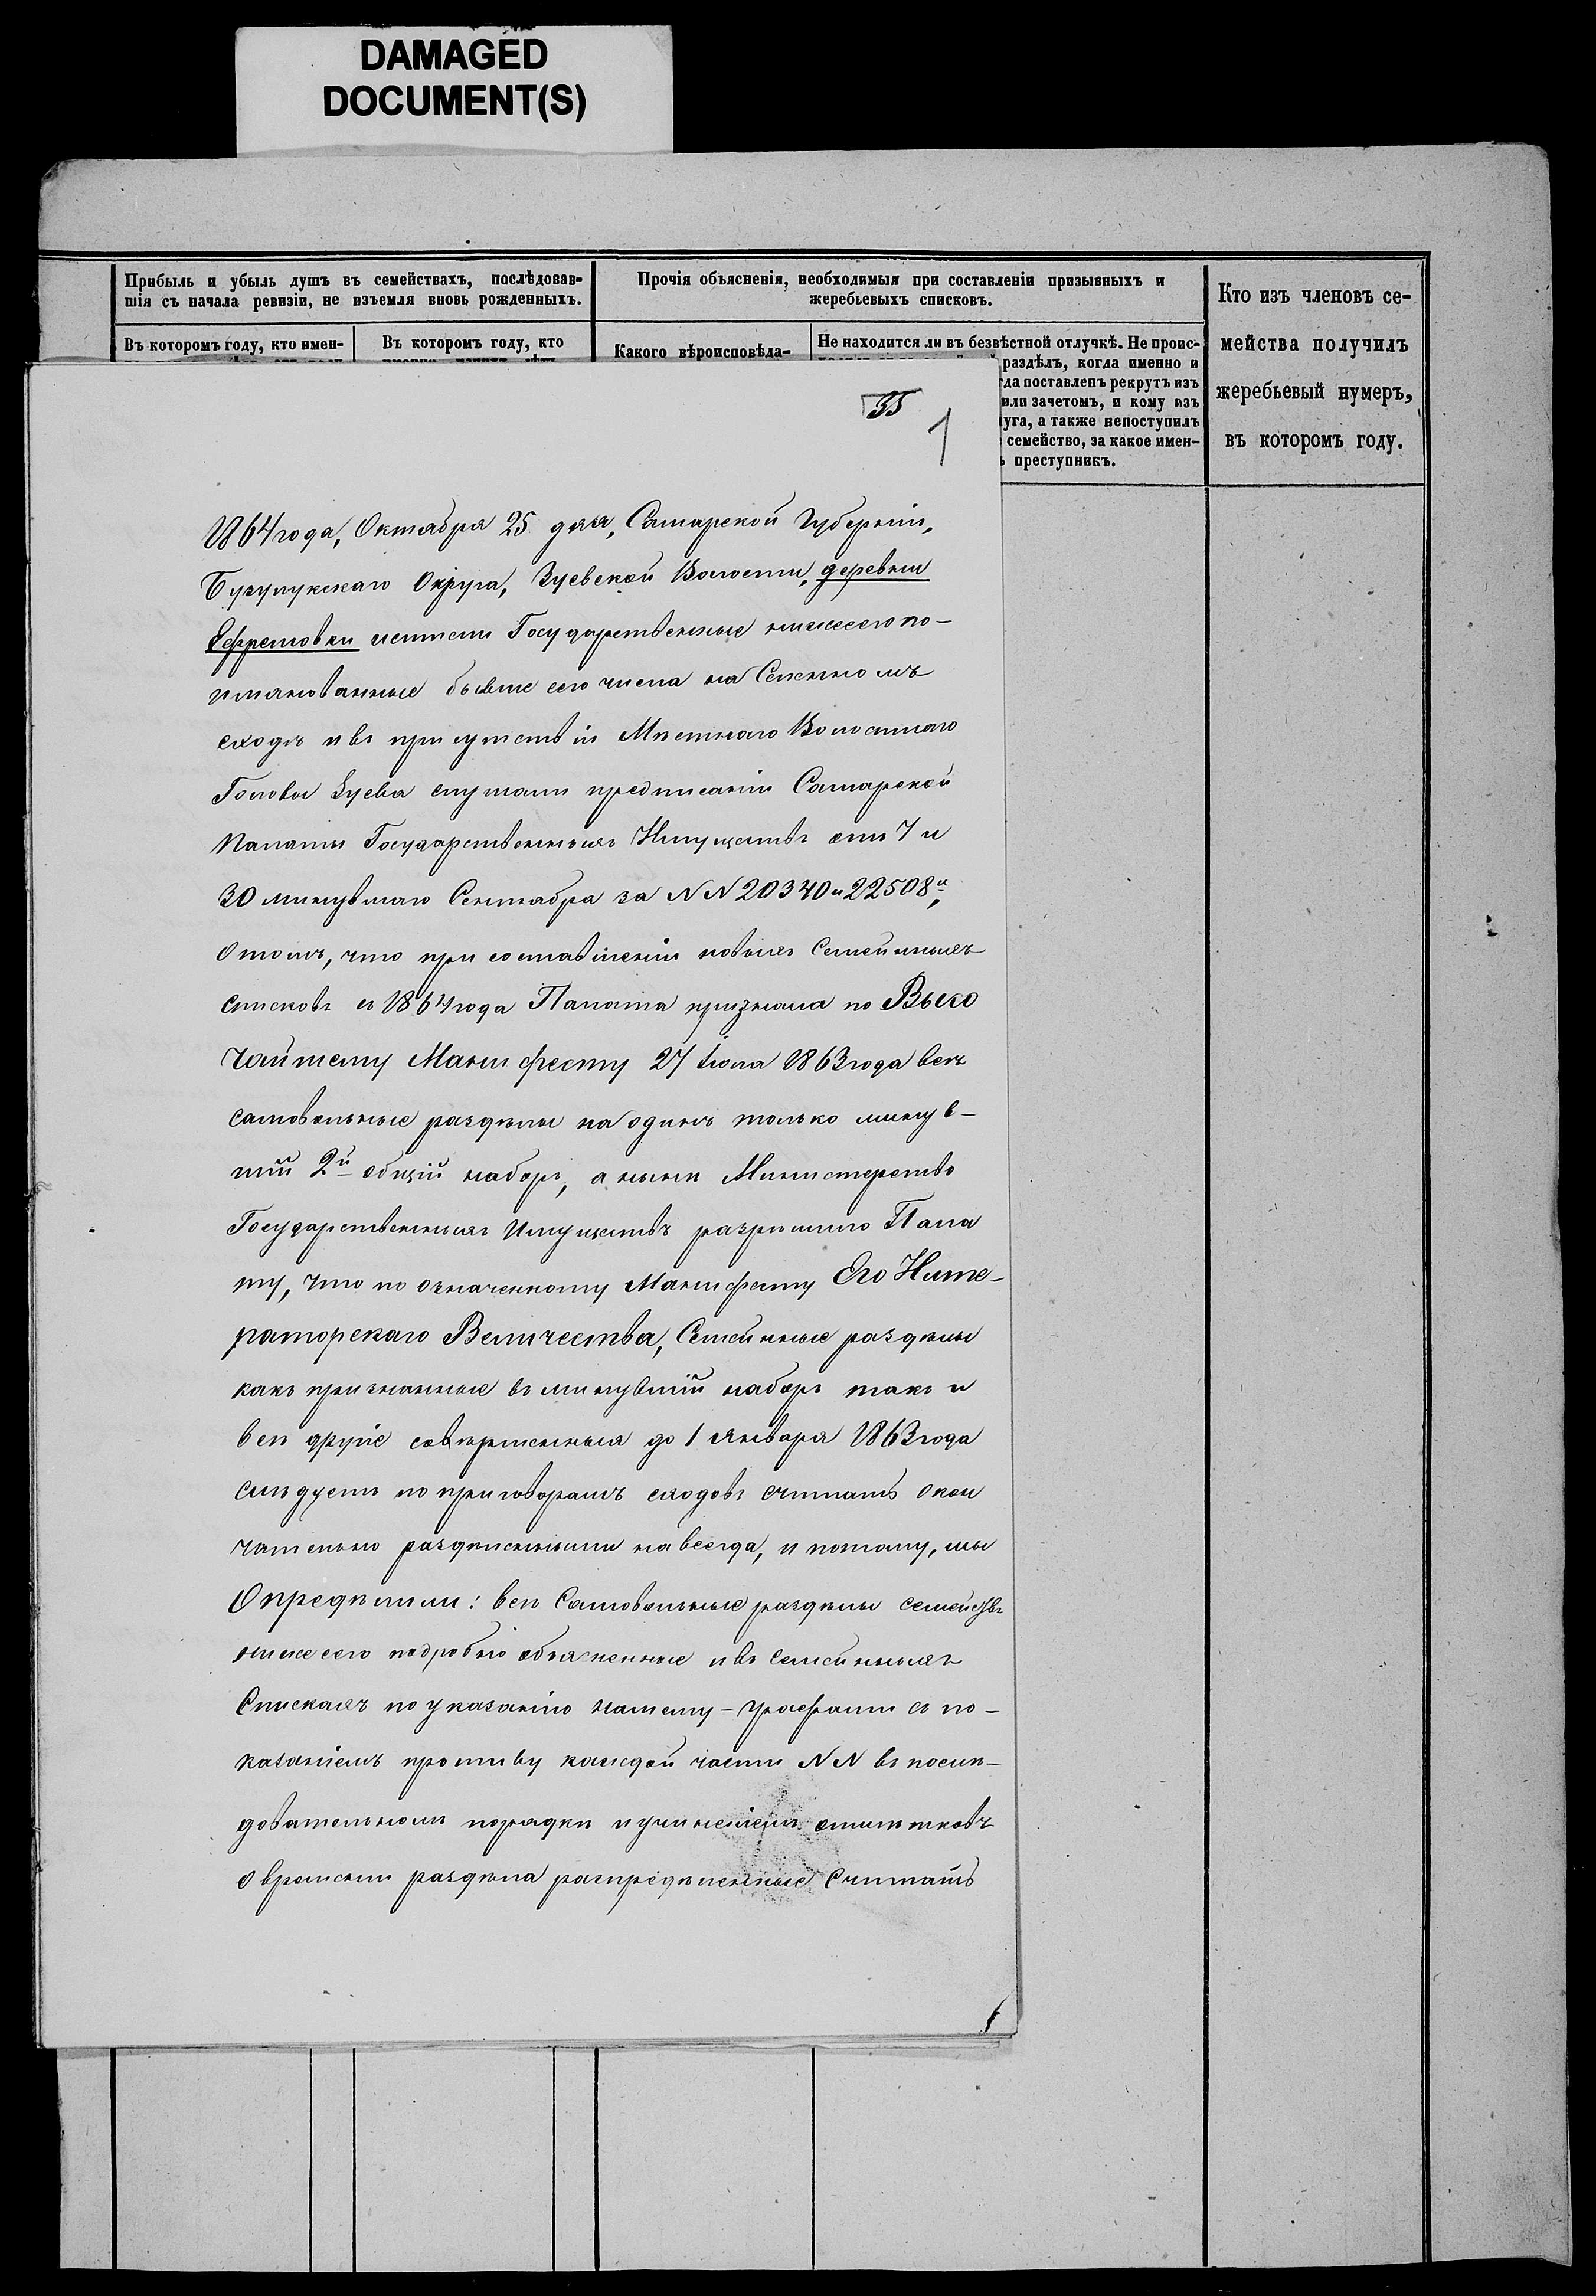 DAMAGED
DOCUMENT(S)
Прибыль и убыль душъ въ семействахъ, послѣдовав-
шія съ начала ревизіи, не изъемля вновь рожденныхъ.
Прочія объясненія, необходимыя при составленіи призывныхъ и
жеребьевыхъ списковъ.
Кто изъ членовъ се-
мейства получилъ
жеребьевый нумеръ,
въ которомъ году.
Въ которомъ году, кто имен-
Въ которомъ году, кто
Какого вѣроисповѣда-
Не находится ли въ безвѣстной отлучкѣ. Не проис-
раздѣлъ, когда именно и
да поставленъ рекрутъ изъ
или зачетомъ, и кому изъ
уга, а также непоступилъ
семейство, за какое имен-
преступникъ.
35
1
1864 года, Октября 25 дня, Самарской Губерніи,
Бузулукскаго Округа, Зуевской Волости, деревни
Ефремовки Государственные нижесего по-
имянованные бывше сего числа на Сельскомъ
сходѣ и въ присутствіи Мѣстнаго Волостнаго
Головы Зуева слушали предписаніи Самарской
Палаты Государственныхъ Имуществъ отъ 7 и
30 минувшаго Сентября за NN 20340 и 22508й,
о томъ, что при составленіи новыхъ Семейныхъ
списковъ съ 1864 года Палата признала по Высо
чайшему Манифесту 27 Іюля 1863 года всѣ
самовольные раздѣлы на одинъ только минув-
шій 2й общій наборъ, а нынѣ Министерство
Государственныхъ Имуществъ разрѣшило Пала
ту, что по означенному Манифесту Его Импе-
раторскаго Величества, Семейные раздѣлы
какъ признанные въ минувшій наборъ такъ и
всѣ другіе совѣршенныя до 1 Января 1863 года
слѣдуетъ по приговорамъ сходовъ считать окон
чательно раздѣленными на всегда, и потому, мы
Опредѣлили: всѣ Самовольные раздѣлы семействъ
нижесего подробно объясненные и въ семейныхъ
Спискахъ по указанію нашему - графами съ по-
казаніемъ противу каждой части NN въ послѣ-
довательномъ порядкѣ и учиненіемъ отмѣтковъ
о времени раздѣла распредѣленные Считать